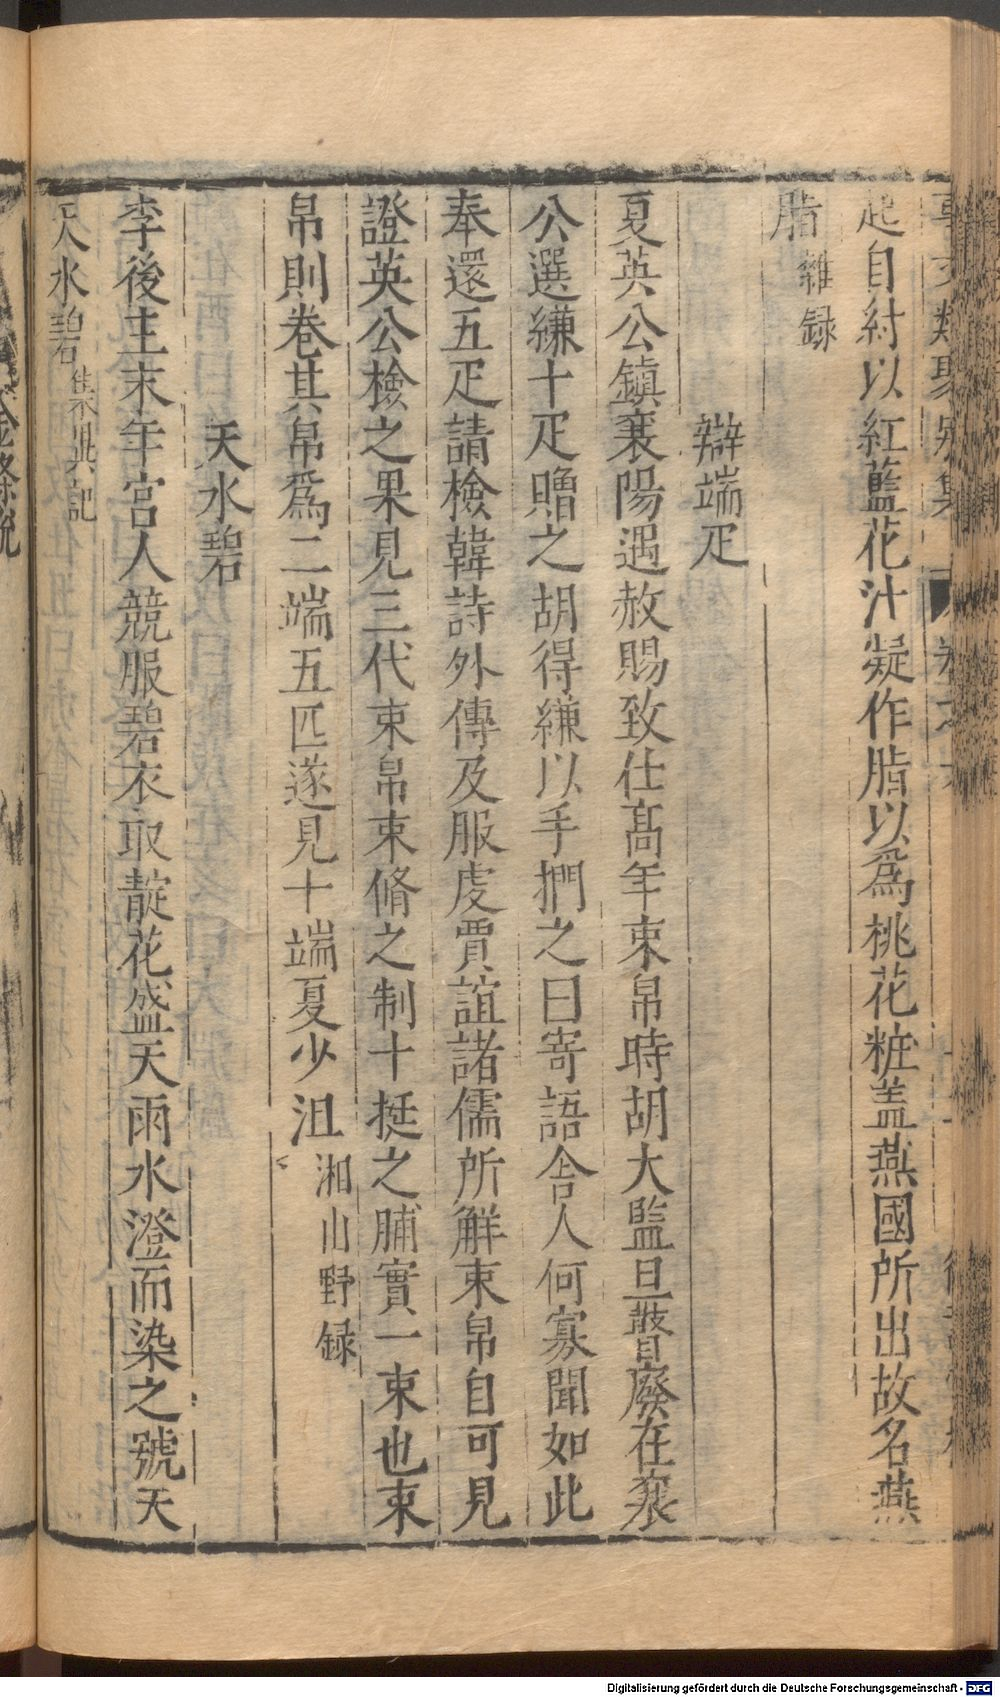 起自紂以紅藍花汁凝作脂以為桃花粧盖燕國所出故名燕
脂 雜録
辯端疋
夏英公鎮襄陽遇赦賜致仕髙年束帛時胡大監旦瞽廢在襄
公選縑十疋贈之胡得縑以手捫之曰寄語舎人何寡聞如此
奉還五疋請檢韓詩外傳及服虔賈誼諸儒所解束帛自可見
證英公檢之果見三代束帛束脩之制十挺之脯實一束也束
帛則卷其帛為二端五匹遂見十端夏少沮 湘山野録
天水碧
李後主末年宮人競服碧衣取靛花盛天雨水澄而染之號天
天水碧 集異記
Digitalisierung gefördert durch die Deutsche Forschungsgemeinschaft - DFG